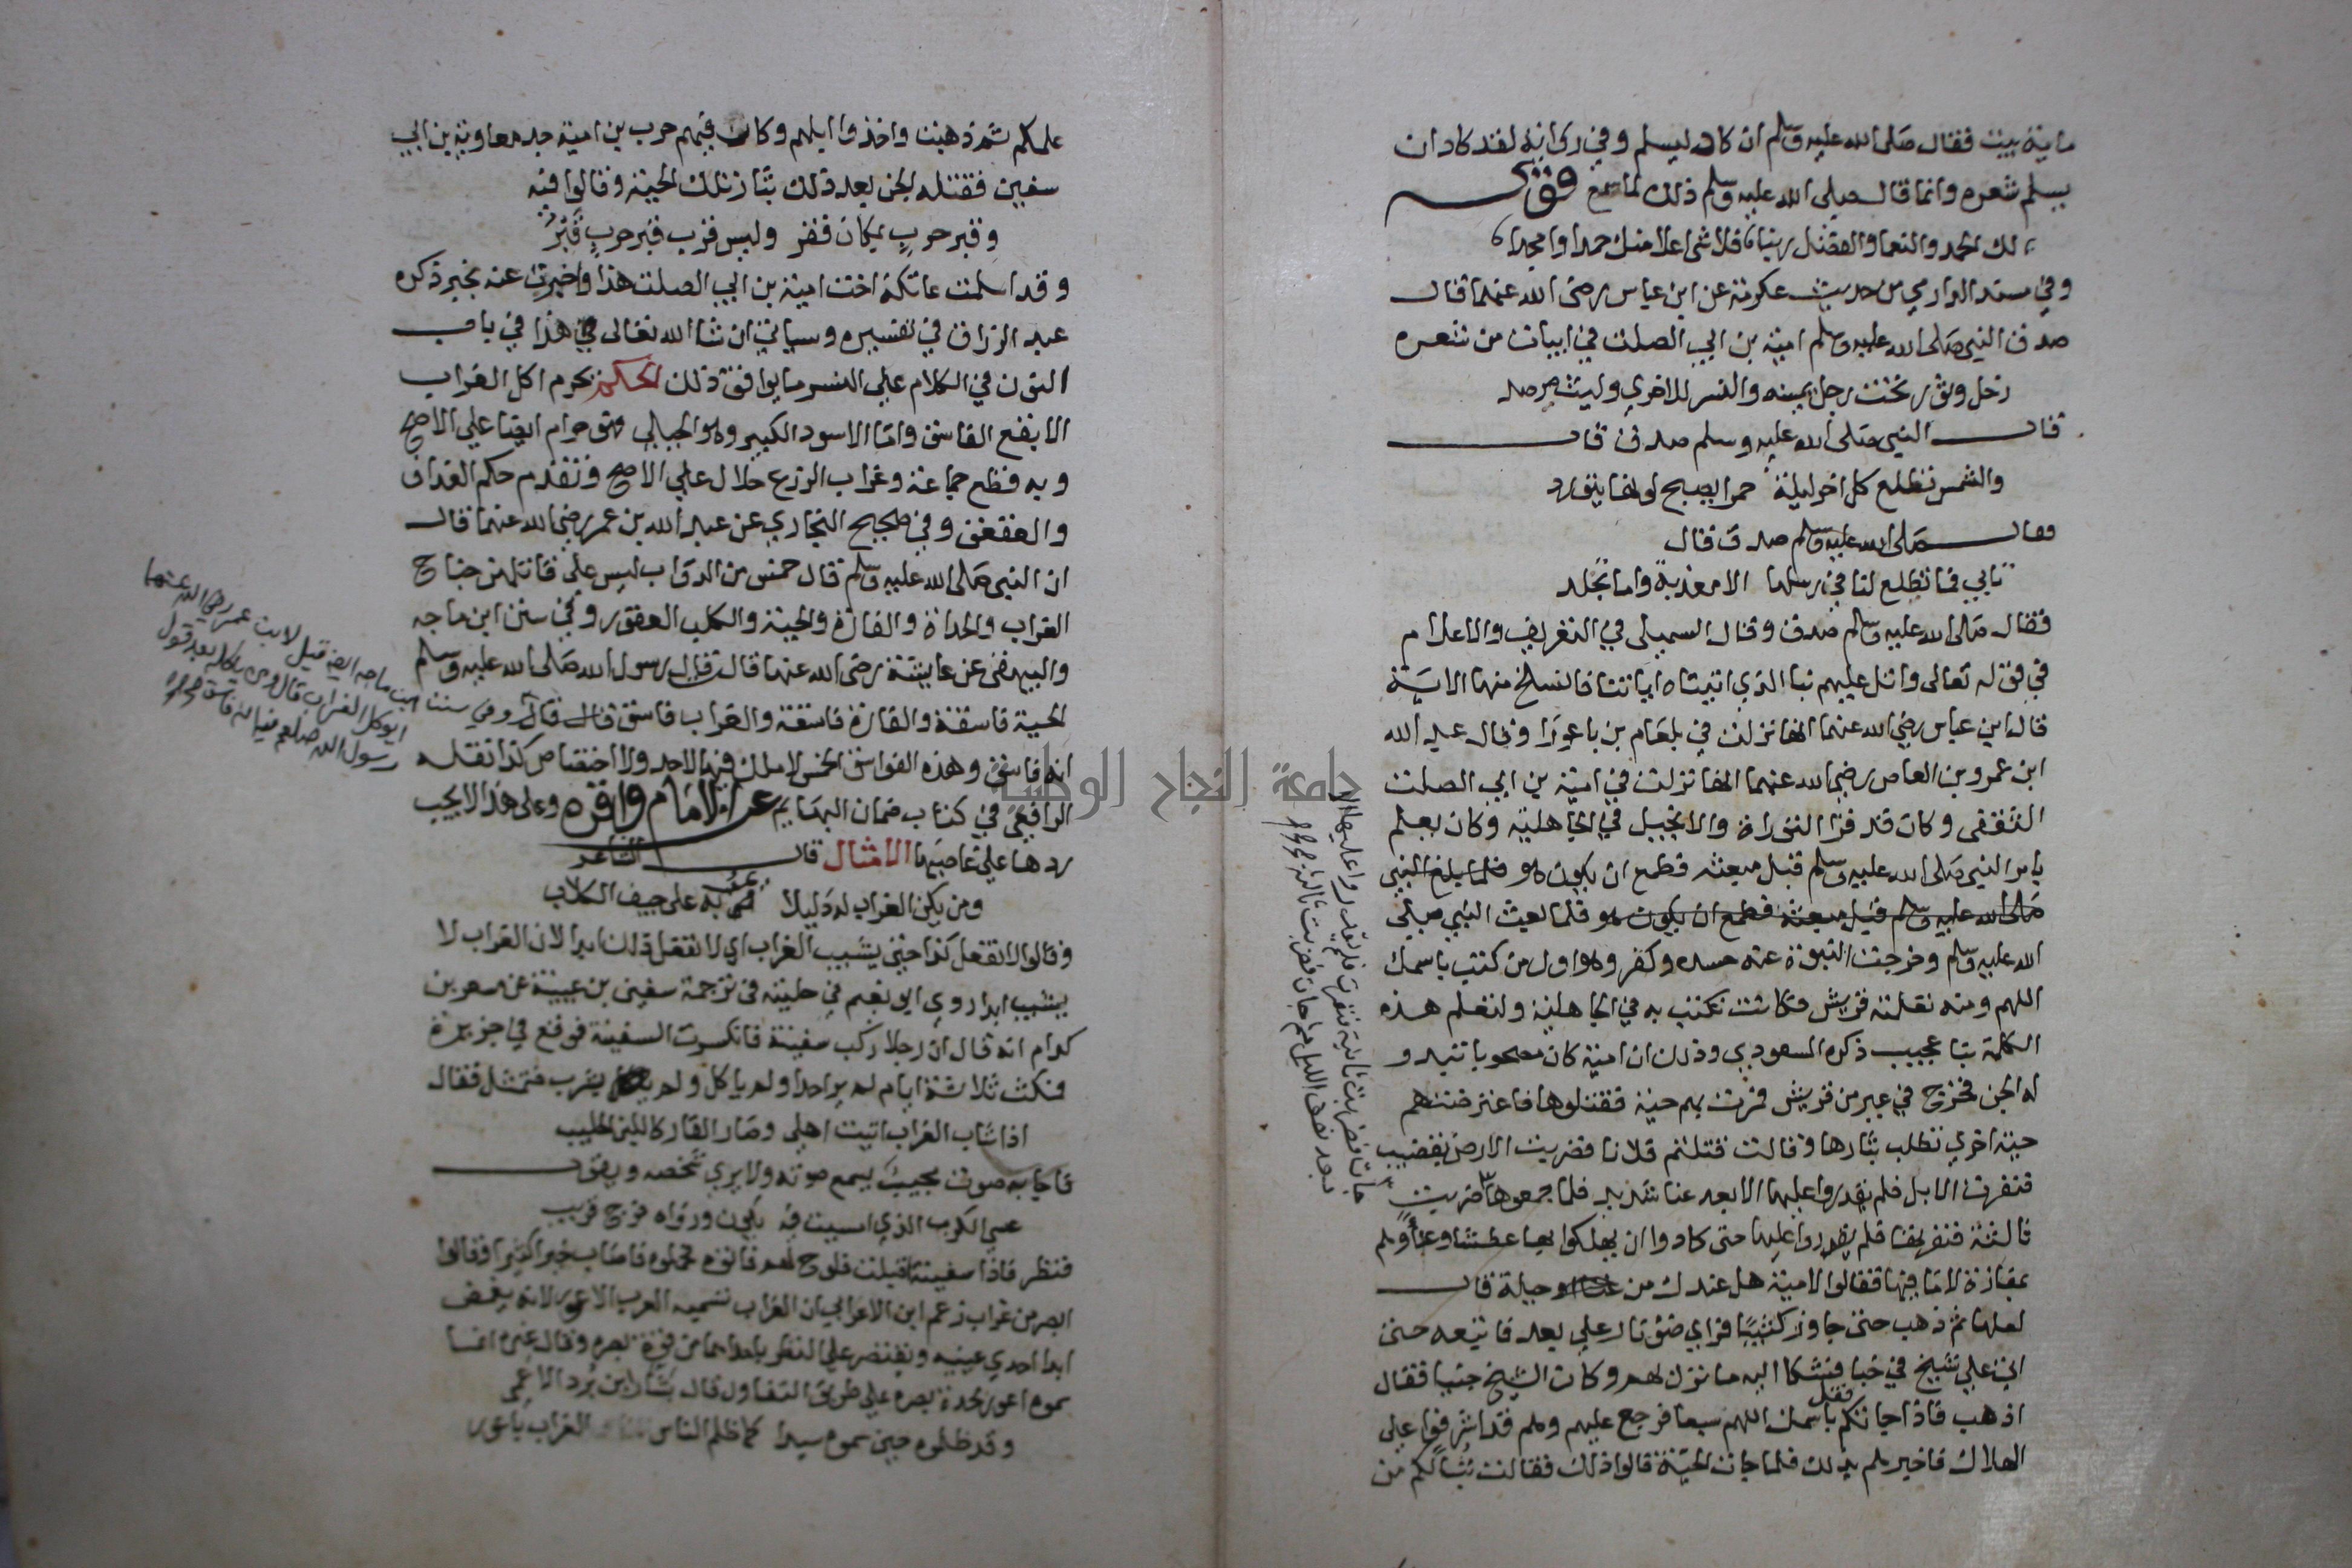 ماية بيت فقال صلى الله عليه وسلم ان كاد ليسلم وفي رواية لقد كاد ان
يسلم شعره وانما قال صلى الله عليه وسلم ذلك لما سمع قوله
لك الحمد والنعما والفضل ربنا فلا شي اعلا منك حمدا وامجدا
وفي مسند الدارمي من حديث عكرمة عن ابن عباس رضي الله عنهما قال
صدق النبي صلى الله عليه وسلم امية بن ابي الصلت في ابيات من شعره
زحل وثور تحت رجل يمينه والنسر للاخري وليث مرصد
قال النبي صلى الله عليه وسلم صدق قال
والشمس تطلع كل اخر ليلة حمرا يصبح لونها يتورد
فقال صلى الله عليه وسلم صدق قال
تابي فما تطلع لنا في رسلها الا معذبة واما تجلد
فقال صلى الله عليه وسلم صدق وقال السهيلي في التعريف والاعلام
في قوله تعالى واتل عليهم نبا الذي اتيناه اياتنا فانسلخ منها الاية
قال ابن عباس رضي الله عنهما انها نزلت في بلعام بن باعورا وقال عبد الله
ابن عمرو بن العاص رضي الله عنهما انها نزلت في امية بن ابي الصلت
الثقفى وكان قد قرا التوراة والانجيل في الجاهلية وكان يعلم
بامر النبي صلى الله عليه وسلم قبل مبعثه فطمع ان يكون هو فلما بلغ النبي
صلى الله عليه وسلم قبل مبعثه فطمع ان يكون هو فلما بعث النبي صلى
الله عليه وسلم وخرجت النبوة عنه حسده وكفر وهو اول من كتب باسمك
اللهم ومنه تعلمته قريش فكانت تكتب به في الجاهلية ولتعلم هذه
الكلمة نبا عجيب ذكره المسعودي وذلك ان امية كان مصحوبا تبدو
له الجن فخرج في عير من قريش فمرت بهم حية فقتلوها فاعترضتهم
حية اخري تطلب بثارها وقالت قتلتم فلانا فضربت الارض بقضيب
فنفرت الابل فلم يقدروا عليها الا بعد عنا شديد فلما جمعوها ضربت
ثالثة فنفرتها فلم يقدروا عليها حتى كادوا ان يهلكوا بها عطشا وعنا وهم
بمفازة لا ما فيها فقالوا لامية هل عندك من حيلة قال
لعلها ثم ذهب حتى جاوز كثيبا فراي ضو نار علي بعد فاتبعه حتى
اتى علي شيخ في خبا فشكا اليه ما نزل بهم وكان الشيخ جنيا فقال
اذهب فاذا جاتكم فقل باسمك اللهم سبعا فرجع عليهم وهم قد اشرفوا علي
الهلاك فاخبرهم بذلك فلما جات الحية قالوا ذلك فقالت تبا لكم من
علمكم ثم ذهبت واخذوا ابلهم وكان فيهم حرب بن امية جد معاوية بن ابي
سفين فقتله الجن بعد ذلك بثار تلك الحية وقالوا فيه
وقبر حرب بمكان قفر وليس قرب قبر حرب قبر
وقد اسلمت عاتكة اخت امية بن ابي الصلت هذا واخبرت عنه بخبر ذكره
عبد الرزاق في تفسيره وسياتي ان شا الله تعالى في هذا في باب
النون في الكلام علي النسر ما يوافق ذلك الحكم يحرم اكل الغراب
الابقع الفاسق واما الاسود الكبير وهو الجبلي فهو حرام ايضا علي الاصح
وبه قطع جماعة وغراب الزرع حلال علي الاصح وتقدم حكم الغداف
والعقعق وفي صحيح البخاري عن عبد الله بن عمر رضي الله عنهما قال
ان النبي صلى الله عليه وسلم قال خمس من الدواب ليس على قاتلهن جناح
الغراب والحداة والفارة والحية والكلب العقور وفي سنن ابن ماجه
والبيهقى عن عايشة رضي الله عنها قالت قال رسول الله صلى الله عليه وسلم
الحية فاسقة والفارة فاسقة والغراب فاسق
وفي سنن ابن ماجه ايضا قيل لابن عمر رضي الله عنهما
ايوكل الغراب قال ومن ياكله بعد قول
رسول الله صلعم فيه انه فاسق
انه فاسق وهذه الفواسق الخمس لا ملك فيها لاحد ولا اختصاص كذا نقله
الرافعي في كتاب ضمان البهايم عن الامام واقره وعلى هذا لا يجب
ردها علي غاصبها الامثال قال الشاعر
ومن يكن الغراب له دليلا يمر به على جيف الكلاب
وقالوا لا تفعل كذا حتى يشيب الغراب اي لا تفعل ذلك ابدا لان الغراب لا
يشيب ابدا روي ابو نعيم في حليته في ترجمة سفين بن عيينة عن مسعر بن
كدام انه قال ان رجلا ركب سفينة فانكسرت السفينة فوقع في جزيرة
فمكث ثلاثة ايام لم ير احدا ولم ياكل ولم يشرب فتمثل فقال
اذا شاب الغراب اتيت اهلي وصار القار كاللبن الحليب
فاجابه صوت مجيب يسمع صوته ولا يري شخصه ويقول
عسي الكرب الذي امسيت فيه يكون وراه فرج قريب
فنظر فاذا سفينة اقبلت فلوح لهم فاتوه فحملوه فاصاب خيرا كثيرا وقالوا
ابصر من غراب زعم ابن الاعرابي ان الغراب تسميه العرب الاعور لانه يغمض
ابدا احدي عينيه ويقتصر علي النظر باحداهما من قوة بصره وقال غيره انما
سموه اعور لحدة بصره علي طريق التفاول قال بشار ابن برد الاعمى
وقد ظلموه حين سموه سيدا كما ظلم الناس الغراب باعورا
جامعة النجاح الوطنية